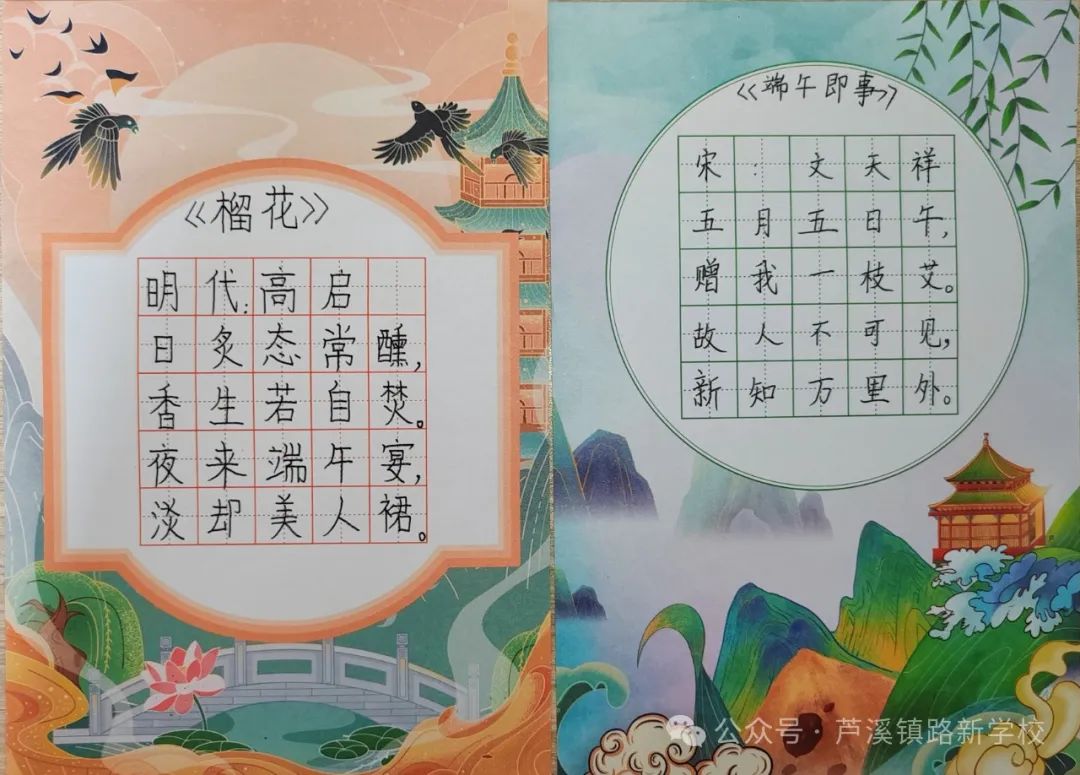 《榴花》
明代:高启
日炙态常醺,
香生若自焚。
夜来端午宴,
淡却美人裙。
《端午即事》
宋:文天祥
五月五日午,
赠我一枝艾。
故人不可见,
新知万里外。
公众号·芦溪镇路新学校